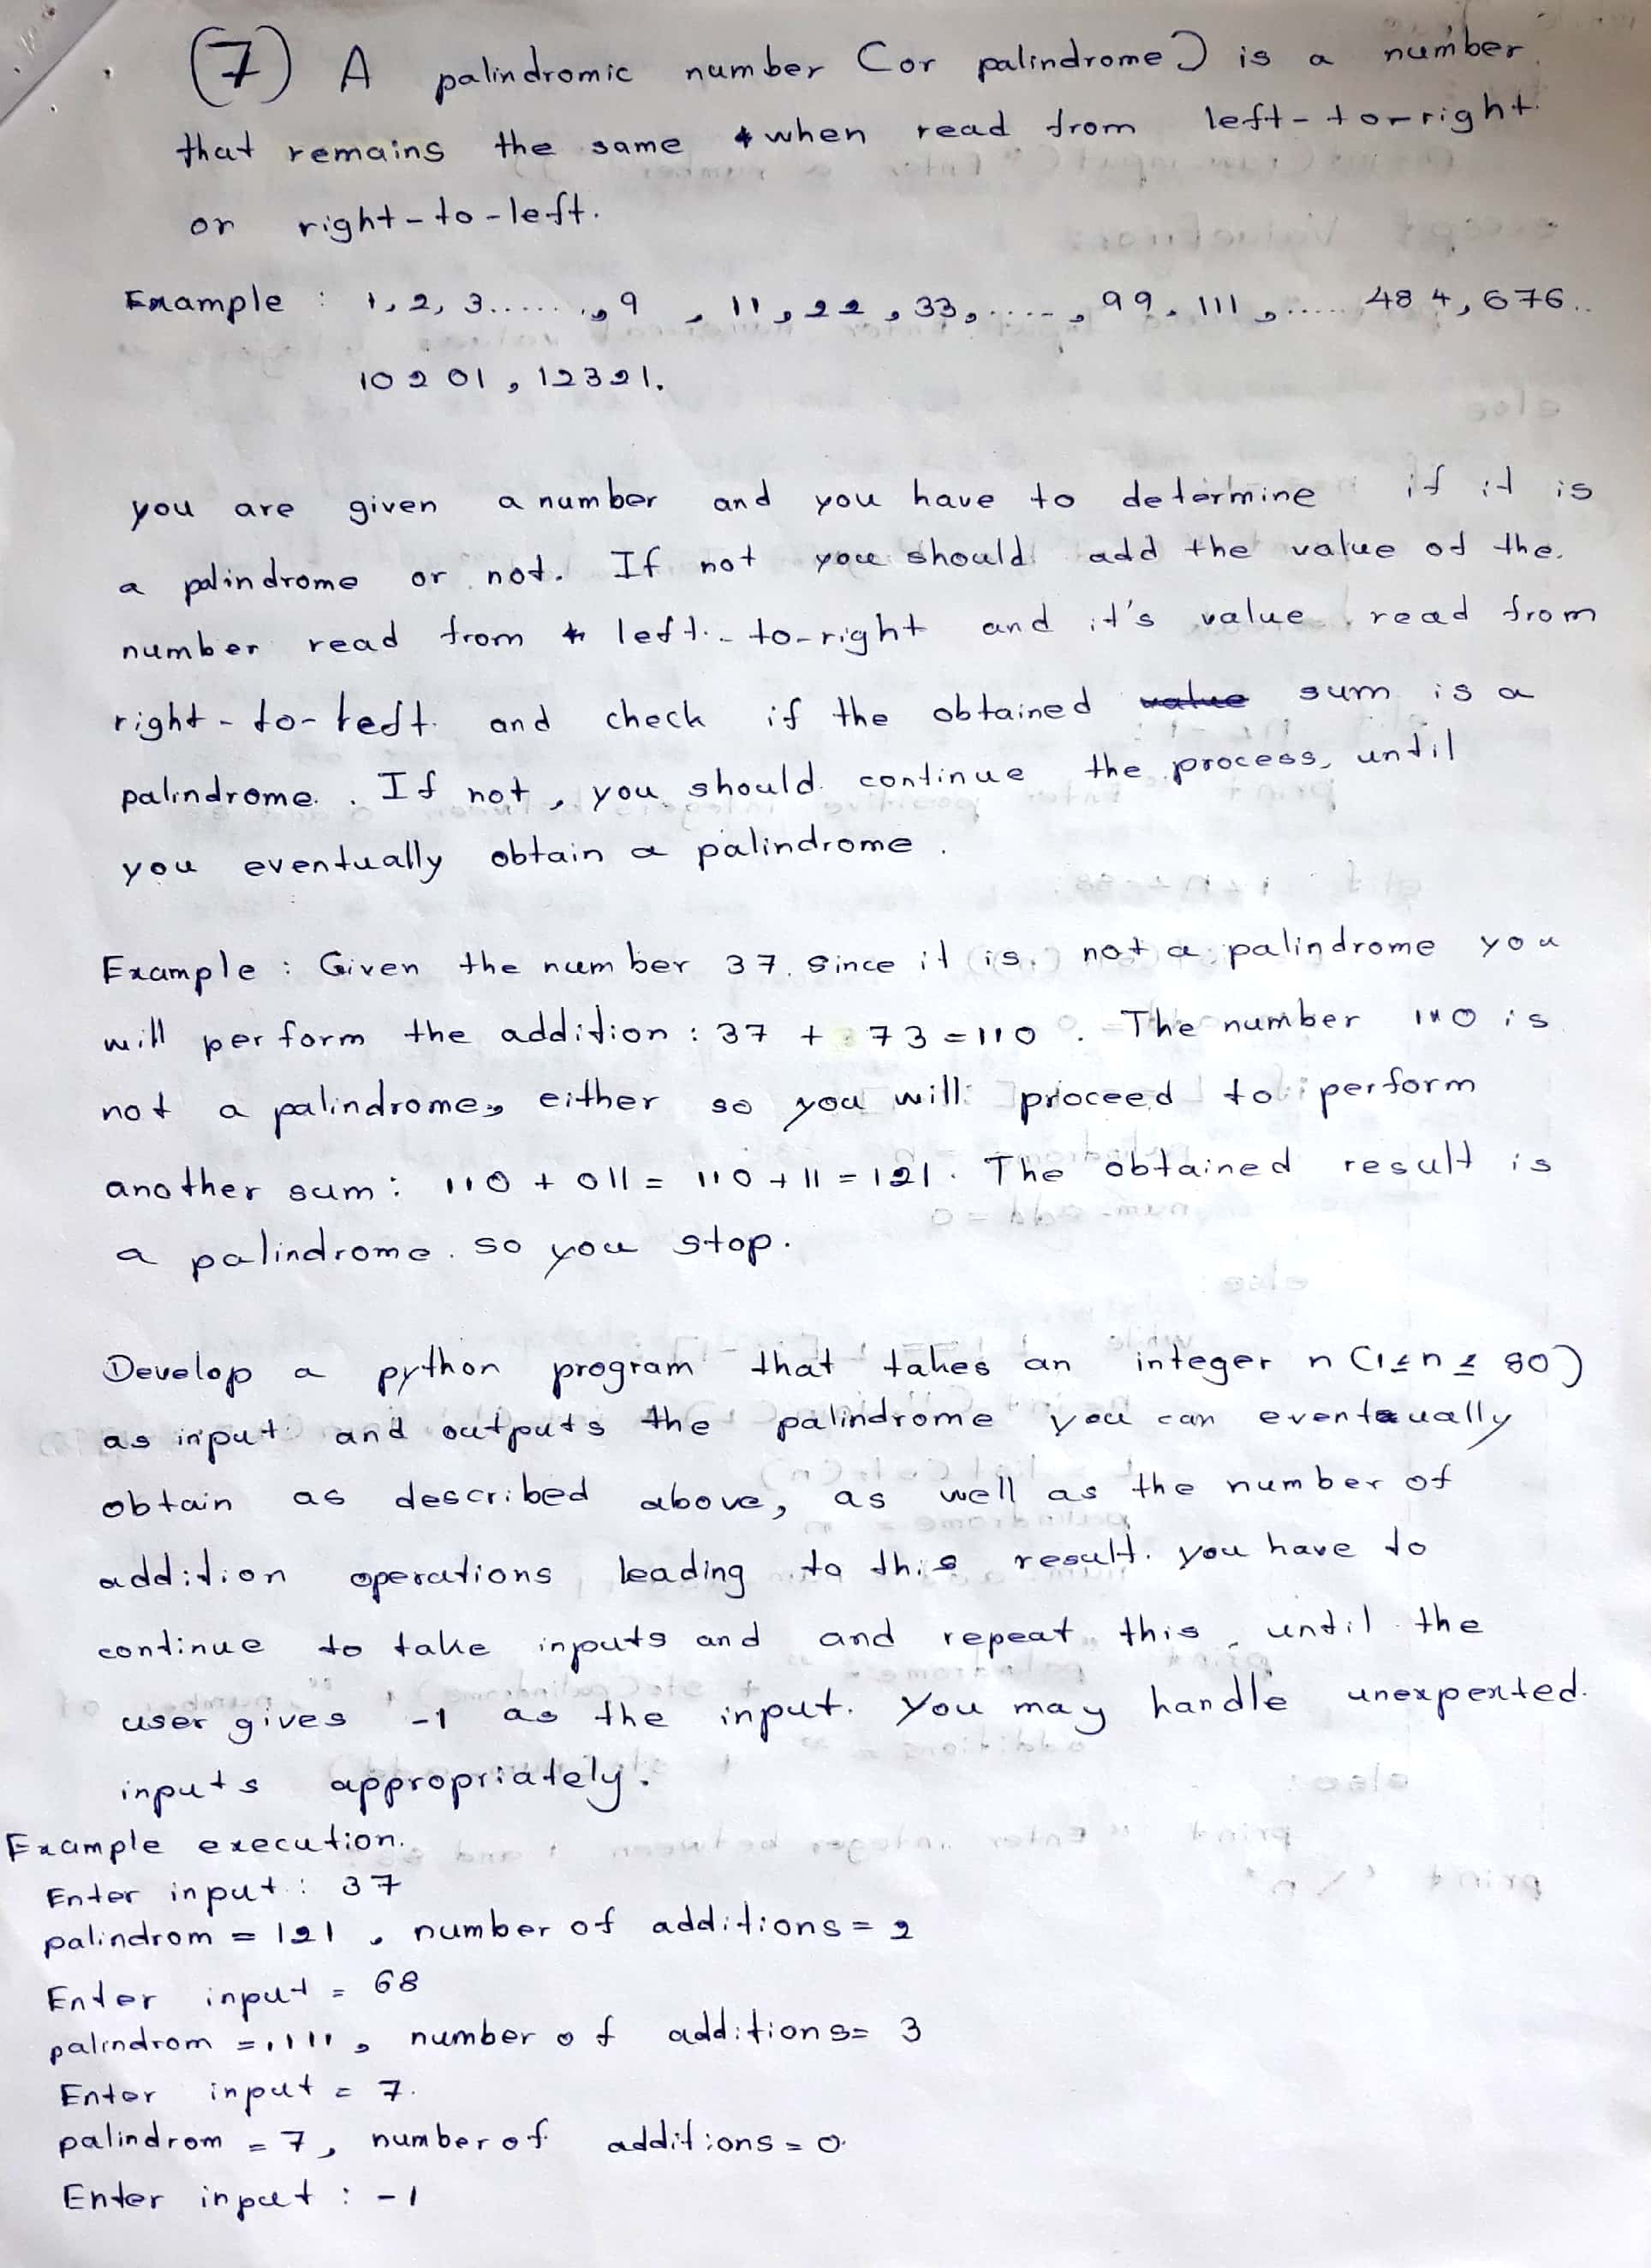 (7) A palindromic number (or palindrome) is a number
that remains the same when read from left-to-right
or right-to-left.
Example : 1, 2, 3......., 9, 11, 22, 33, ....., 99, 111, ..... 484, 676..
10201, 12321.
you are given a number and you have to determine if it is
a palindrome or not. If not you should add the value of the
number read from left-to-right and it's value read from
right-to-left and check if the obtained value sum is a
palindrome. If not, you should continue the process, until
you eventually obtain a palindrome.
Example : Given the number 37. Since it is not a palindrome you
will perform the addition : 37 + 73 = 110. The number 110 is
not a palindrome, either so you will proceed to perform
another sum: 110 + 011 = 110 + 11 = 121. The obtained result is
a palindrome. so you stop.
Develop a python program that takes an integer n (1≤n≤80)
as input and outputs the palindrome you can eventually
obtain as described above, as well as the number of
addition operations leading to this result. you have to
continue to take inputs and and repeat this, until the
user gives -1 as the input. You may handle unexpexted
inputs appropriately.
Example execution.
Enter input : 37
palindrom = 121, number of additions = 2
Enter input = 68
palindrom = 1111, number of additions = 3
Enter input = 7.
palindrom = 7, number of additions = 0.
Enter input : -1